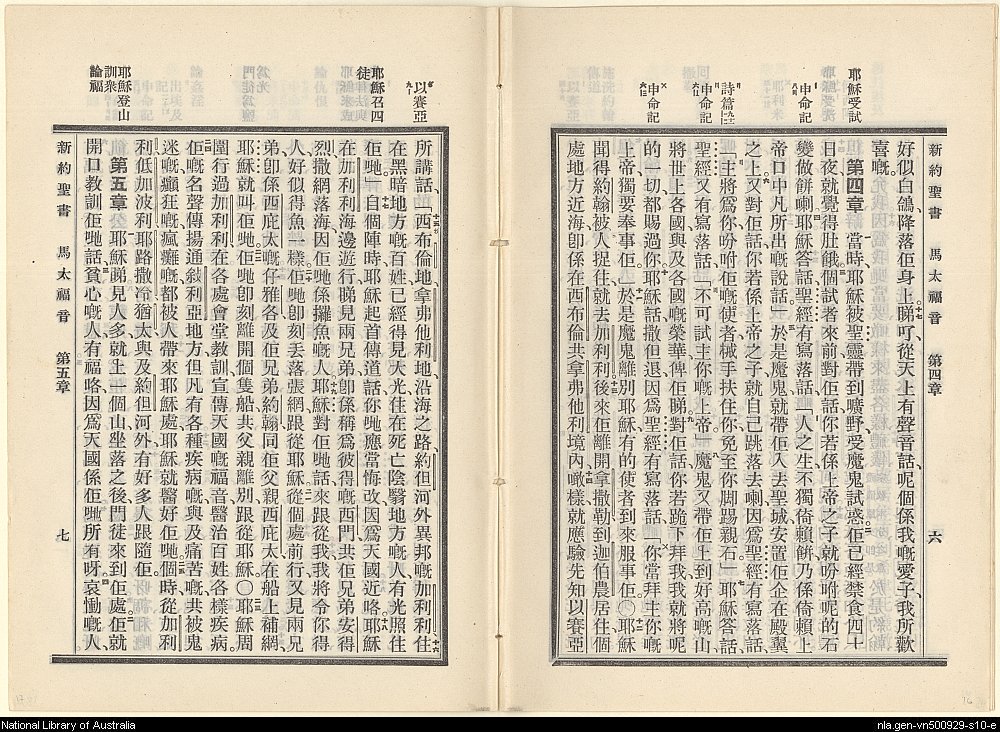 新約聖書 馬太福音 第四章 六
耶穌受試
申命記
詩篇
申命記
申命記
好似白鴿降落佢身上睇吖從天上有聲音話呢個係我嘅愛子我所歡
喜嘅
第四章 當時耶穌被聖靈帶到曠野受魔鬼試惑佢已經禁食四十
日夜就覺得肚餓個試者來前對佢話你若係上帝之子就吩咐呢的石
變做餅喇耶穌答話聖經有寫落話「人之生不獨倚賴餅乃係倚賴上
帝口中凡所出嘅說話」於是魔鬼就帶佢入去聖城安置佢企在殿翼
之上又對佢話你若係上帝之子就自己跳落去喇因爲聖經有寫落話
「主將爲你吩咐佢嘅使者械手扶住你免至你脚踢親石」耶穌答話
聖經又有寫落話「不可試主你嘅上帝」魔鬼又帶佢上到好高嘅山
將世上各國與及各國嘅榮華俾佢睇對佢話你若跪下拜我我就將呢
的一切都賜過你耶穌話撒但退因爲聖經有寫落話「你當拜主你嘅
上帝獨要奉事佢」於是魔鬼離別耶穌有的使者到來服事佢〇耶穌
聞得約翰被人捉住就去加利利後來佢離開拿撒勒到迦伯農居住個
處地方近海卽係在西布倫共拿弗他利境內噉樣就應驗先知以賽亞
以賽亞
耶穌召四
徒
耶穌登山
訓衆
論福
所講話「西布倫地拿弗他利地沿海之路約但河外異邦嘅加利利住
在黑暗地方嘅百姓已經得見大光住在死亡陰翳地方嘅人有光照住
佢哋」自個陣時耶穌起首傳道話你哋應當悔改因爲天國近咯耶穌
在加利利海邊遊行睇見兩兄弟卽係稱爲彼得嘅西門共佢兄弟安得
烈撒網落海因佢哋係攞魚嘅人耶穌對佢哋話來跟從我我將令你得
人好似得魚一樣佢哋卽刻丟落張網跟從耶穌從個處前行又見兩兄
弟卽係西庇太嘅仔雅各及佢兄弟約翰同佢父親西庇太在船上補網
耶穌就叫佢哋佢哋卽刻離開個隻船共父親離別跟從耶穌〇耶穌周
圍行過加利利在各處會堂教訓宣傳天國嘅福音醫治百姓各樣疾病
佢嘅名聲傳揚通叙利亞地方佢凡有各種疾病嘅與及痛苦嘅共被鬼
迷嘅癲狂嘅瘋癱嘅都被人帶來耶穌處耶穌就醫好佢哋個時從加利
利低加波利耶路撒冷猶太與及約但河外有好多人跟隨佢
第五章 耶穌睇見人多就上一個山坐落之後門徒來到佢處佢就
開口教訓佢哋話貧心嘅人有福咯因爲天國係佢哋所有呀哀慟嘅人
新約聖書 馬太福音 第五章 七
National Library of Australia
nla.gen-vn500929-s10-e